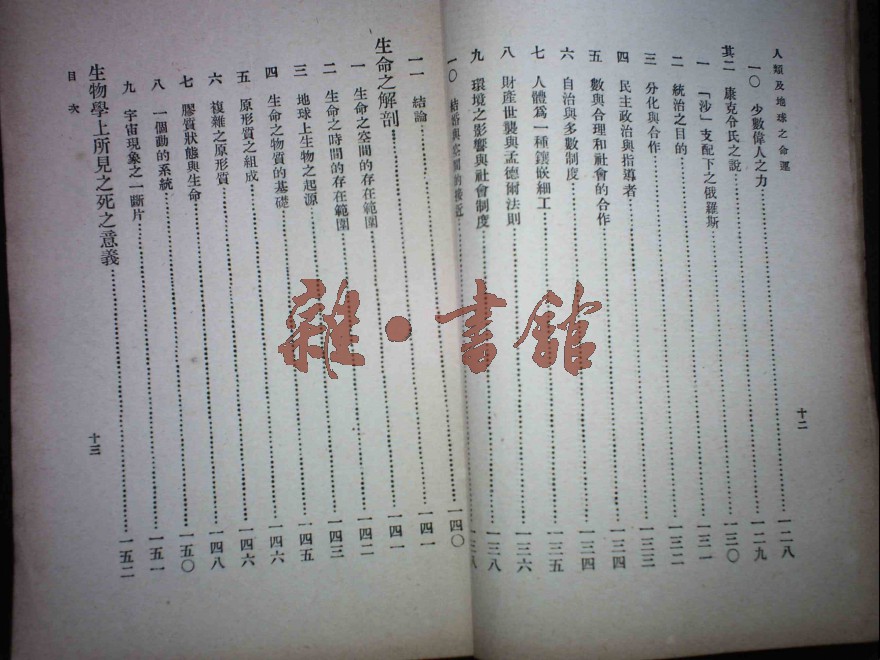 人類及地球之命運
十二
一〇 少數偉人之力……一二八
其二 康克令氏之說……一二九
一 「沙」支配下之俄羅斯……一三〇
二 統治之目的……一三一
三 分化與合作……一三二
四 民主政治與指導者……一三三
五 數與合理和社會的合作……一三四
六 自治與多數制度……一三四
七 人體爲一種鑲嵌細工……一三五
八 財產世襲與孟德爾法則……一三六
九 環境之影響與社會制度……一三八
一〇 結婚與空間的接近……一三八
一一 結論……一四〇
生命之解剖……一四一
一 生命之空間的存在範圍……一四一
二 生命之時間的存在範圍……一四二
三 地球上生物之起源……一四三
四 生命之物質的基礎……一四五
五 原形質之組成……一四六
六 複雜之原形質……一四六
七 膠質狀態與生命……一四八
八 一個動的系統……一五〇
九 宇宙現象之一斷片……一五一
生物學上所見之死之意義……一五二
目次
十三
雜·書館